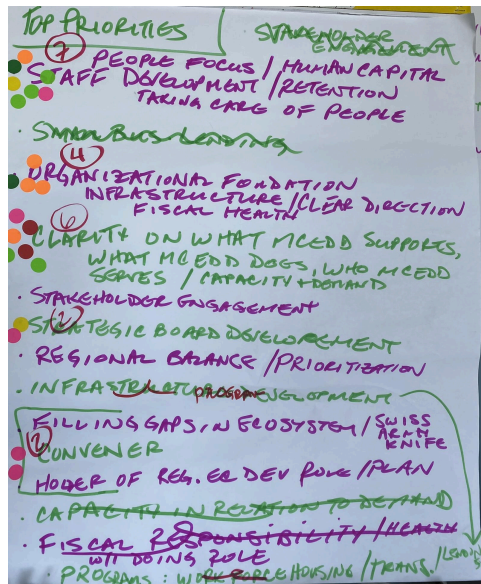 TOP PRIORITIES
STAKEHOLDER
ENGAGEMENT
7
PEOPLE FOCUS / HUMAN CAPITAL
STAFF DEVELOPMENT / RETENTION
TAKING CARE OF PEOPLE
· SMALL BUS LENDING
4
ORGANIZATIONAL FONDATION
INFRASTRUCTURE / CLEAR DIRECTION
FISCAL HEALTH
6
CLARITY ON WHAT MCEDD SUPPORTS,
WHAT MCEDD DOES, WHO MCEDD
SERVES / CAPACITY + DEMAND
· STAKEHOLDER ENGAGEMENT
2
STRATEGIC BOARD DEVELOPEMENT
· REGIONAL BALANCE / PRIORITIZATION
· INFRASTRUCTURE PROGRAM DEVELOPMENT
· FILLING GAPS IN ECOSYSTEM / SWISS
ARMY
KNIFE
2
CONVENER
HOLDER OF REG. EC DEV ROLE / PLAN
· CAPACITY IN RELATION TO DEMAND
· FISCAL RESPONSIBILITY / HEALTH
DOING ROLE
· PROGRAMS: WORKFORCE HOUSING / TRANS. /